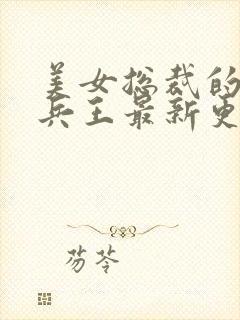 美女总裁的
兵王最新更
芬芩